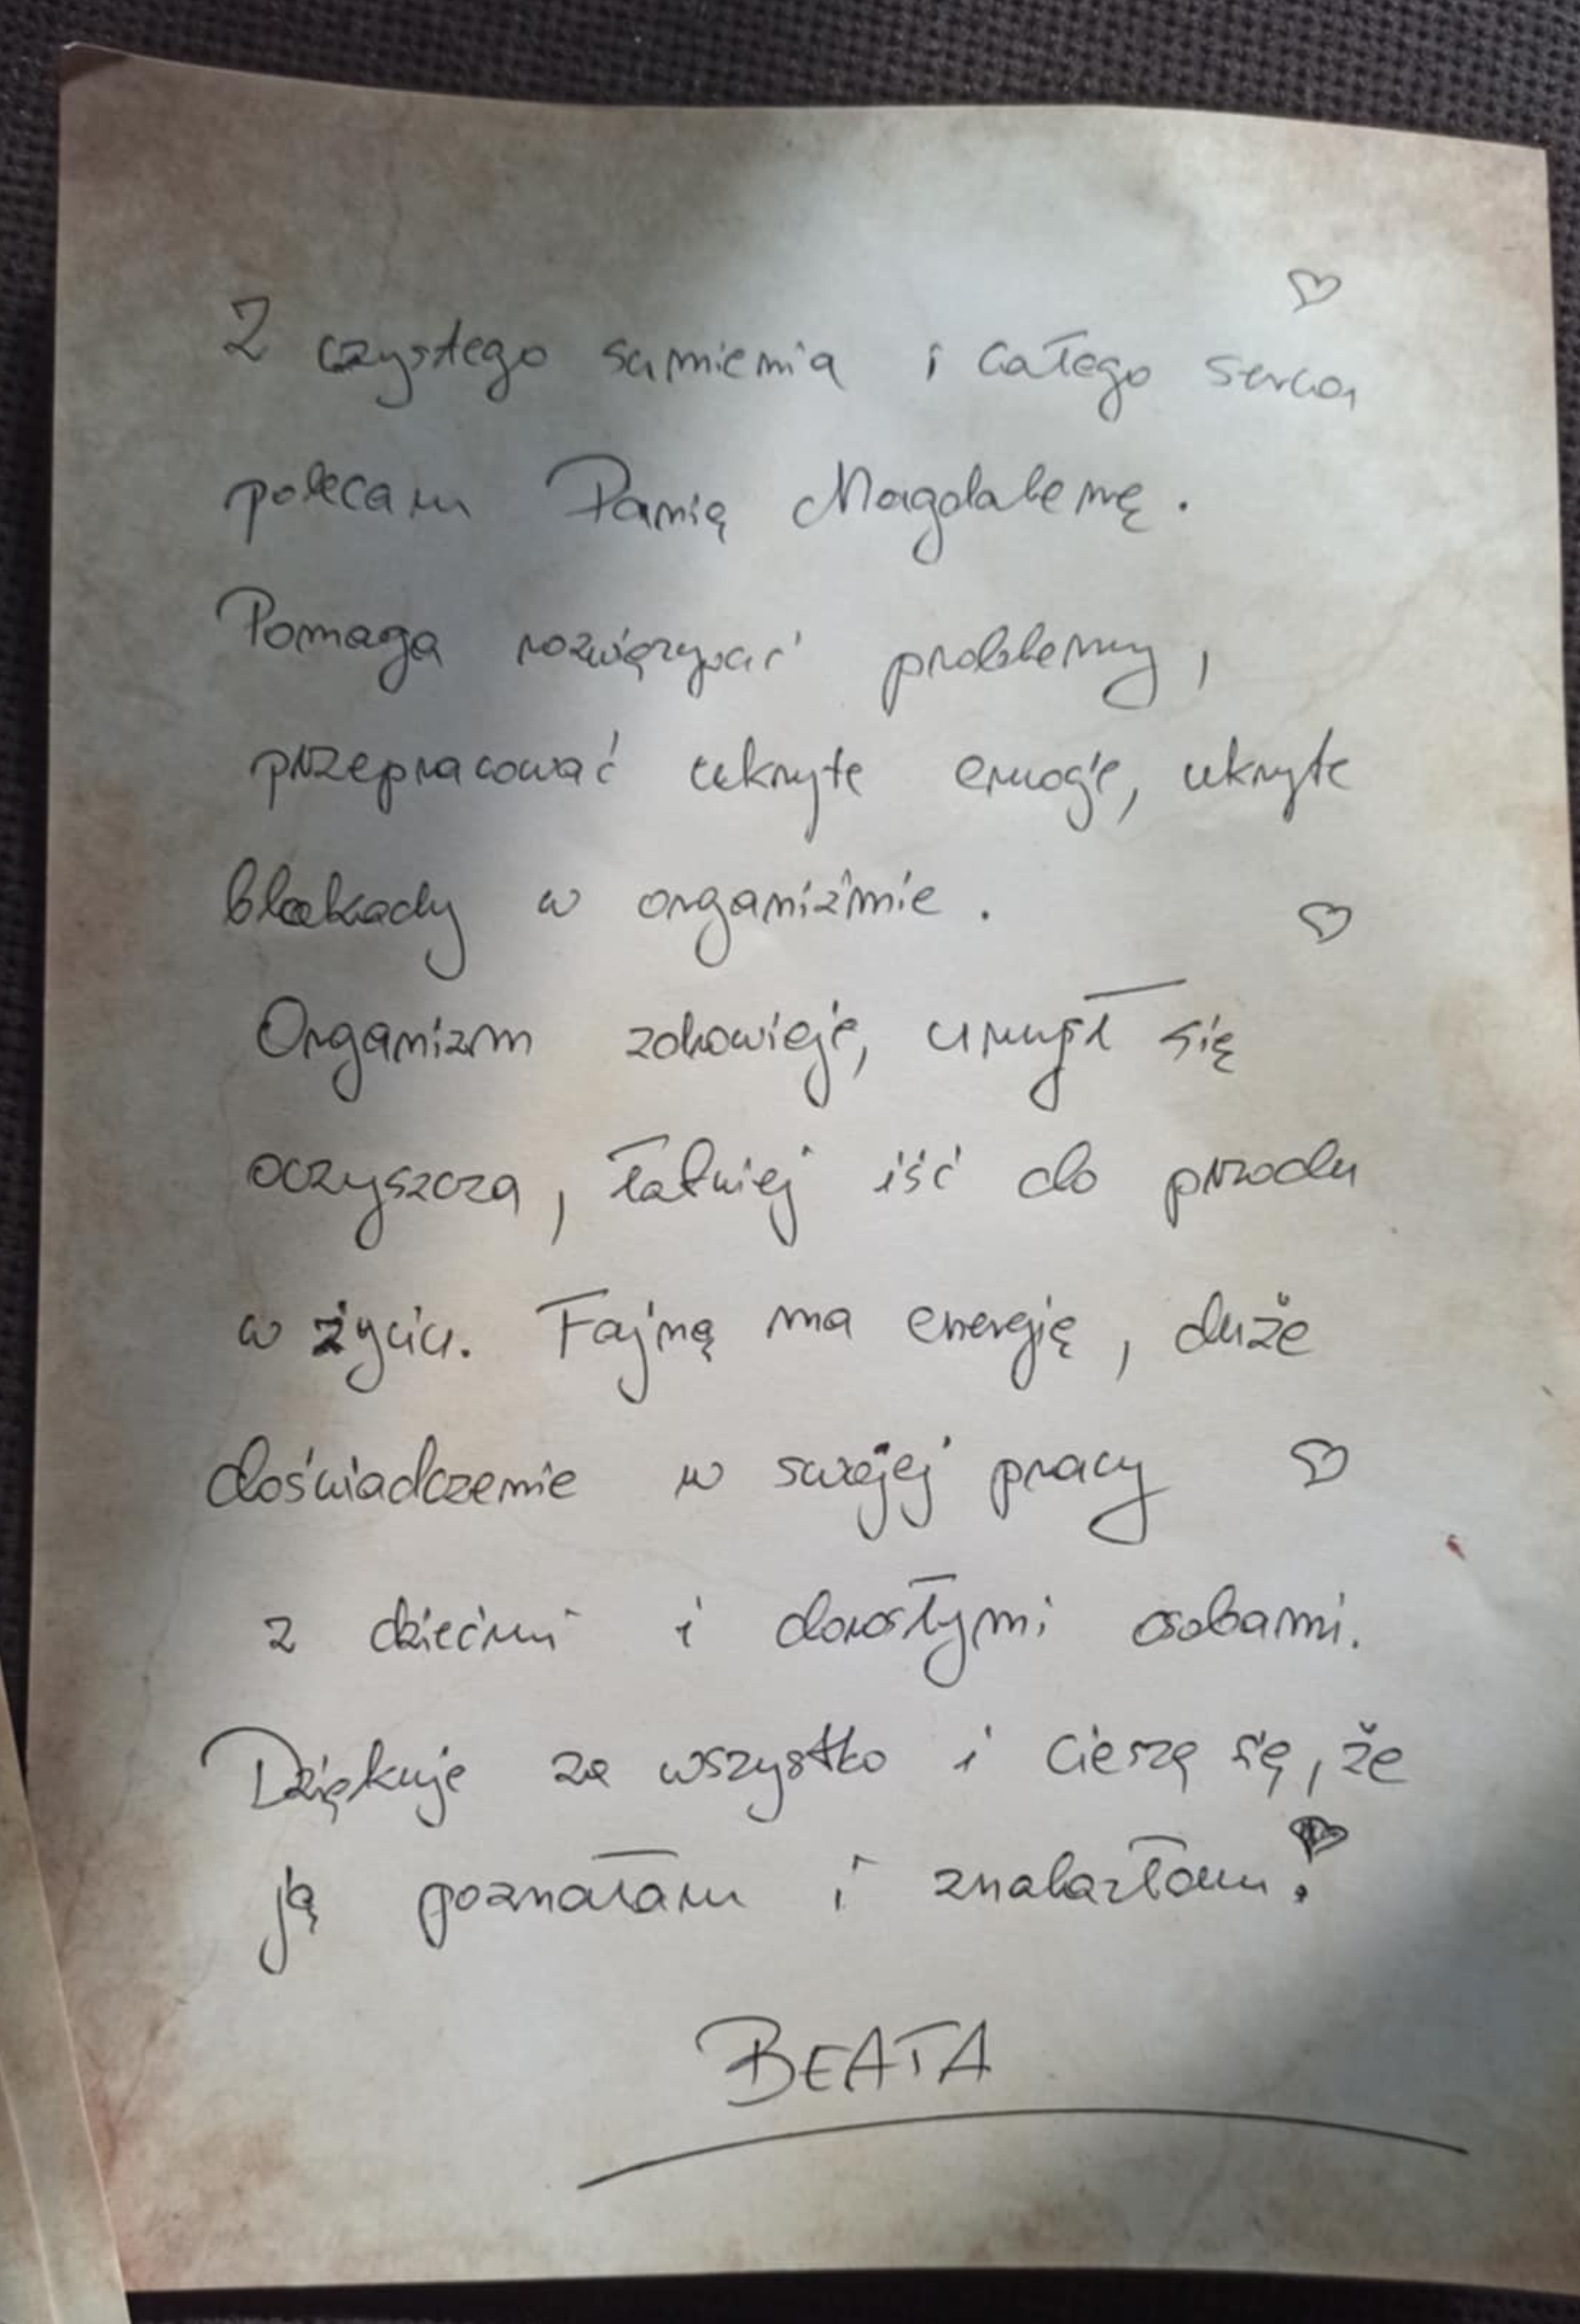 Z czystego sumienia i całego serca
polecam Panią Magdalenę.
Pomaga rozwiązywać problemy,
przepracować ukryte emocje, ukryte
blokady w organiźmie.
Organizm zdrowieje, umysł się
oczyszcza, łatwiej iść do przodu
w życiu. Fajną ma energię, duże
doświadczenie w swojej pracy
z dziećmi i dorosłymi osobami.
Dziękuje za wszystko i cieszę się, że
ją poznałam i znalazłam.
BEATA